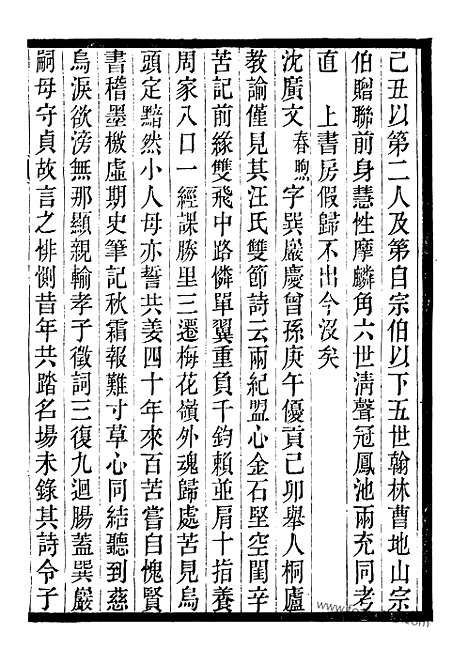 己丑以第二人及第自宗伯以下五世翰林曹地山宗
伯贈聯前身慧性摩麟角六世淸聲冠鳳池兩充同考
直　上書房假歸不出今沒矣
沈廣文春煦字巽巖慶曾孫庚午優貢己卯舉人桐廬
教諭僅見其汪氏雙節詩云兩紀盟心金石堅空閨辛
苦記前緣雙飛中路憐單翼重負千鈞賴並肩十指養
周家八口一經課勝里三遷梅花嶺外魂歸處苦見烏
頭定黯然小人母亦誓共姜四十年來百苦嘗自愧賢
書稽墨檄虛期史筆記秋霜報難寸草心同結聽到慈
烏淚欲滂無那顯親輸孝子徵詞三復九迴腸蓋巽巖
嗣母守貞故言之悱惻昔年共踏名場未錄其詩令子